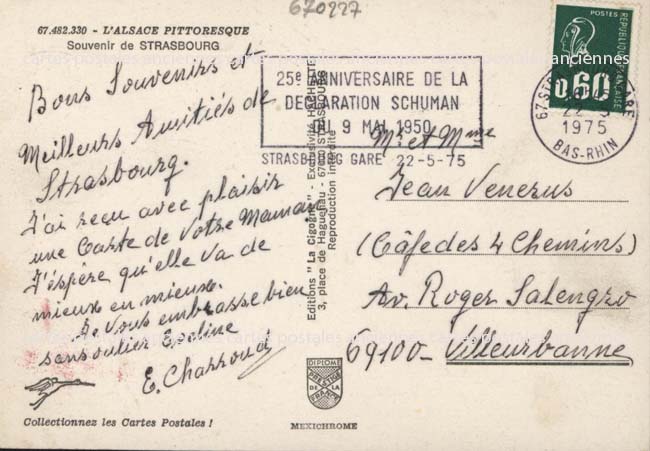 670227
67.482.330 - L'ALSACE PITTORESQUE
Souvenir de STRASBOURG
Bons Souvenirs et
Meilleurs Amitiés de
Strasbourg.
J'ai reçu avec plaisir
une Carte de Votre Maman
J'éspère qu'elle va de
mieux en mieux.
Je Vous embrasse bien
sans oulier Eveline
E. Charroud
Collectionnez les Cartes Postales !
Editions "La Cigogne" - Exclusivité HACHETTE
3, place de Haguenau - 67000 STRASBOURG
Reproduction interdite
25e ANNIVERSAIRE DE LA
DECLARATION SCHUMAN
DU 9 MAI 1950
STRASBOURG GARE 22-5-75
POSTES
0,60
REPUBLIQUE FRANÇAISE
67 STRASBOURG GARE
22-5
1975
BAS-RHIN
Mr et Mme
Jean Venerus
(Câfe des 4 Chemins)
Av. Roger Salengro
69100 - Villeurbanne
DIPLOME
PRESTIGE
DE LA
FRANCE
MEXICHROME
cartes postales anciennes cartes postales anciennes cartes postales anciennes